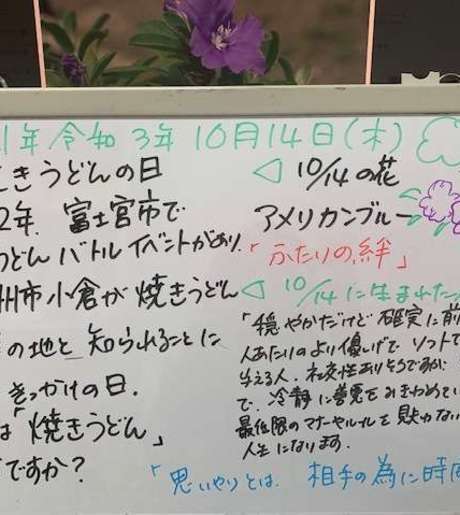 1年令和3年10月14日(木)
きうどんの日
2年、富士宮市で
うどんバトルイベントがあり、
州市小倉が焼きうどん
の地と知られることに
きっかけの日。
は「焼きうどん」
ですか?
◁ 10/14の花
アメリカンブルー
「ふたりの絆」
◁ 10/14に生まれた
「穏やかだけど確実に前
人あたりのより優しげでソフトで
与える人。社交性ありそうですが
で、冷静に善悪をみきわめてい
最低限のマナーやルールを見
人生になります。
「思いやりとは、相手の為に時間